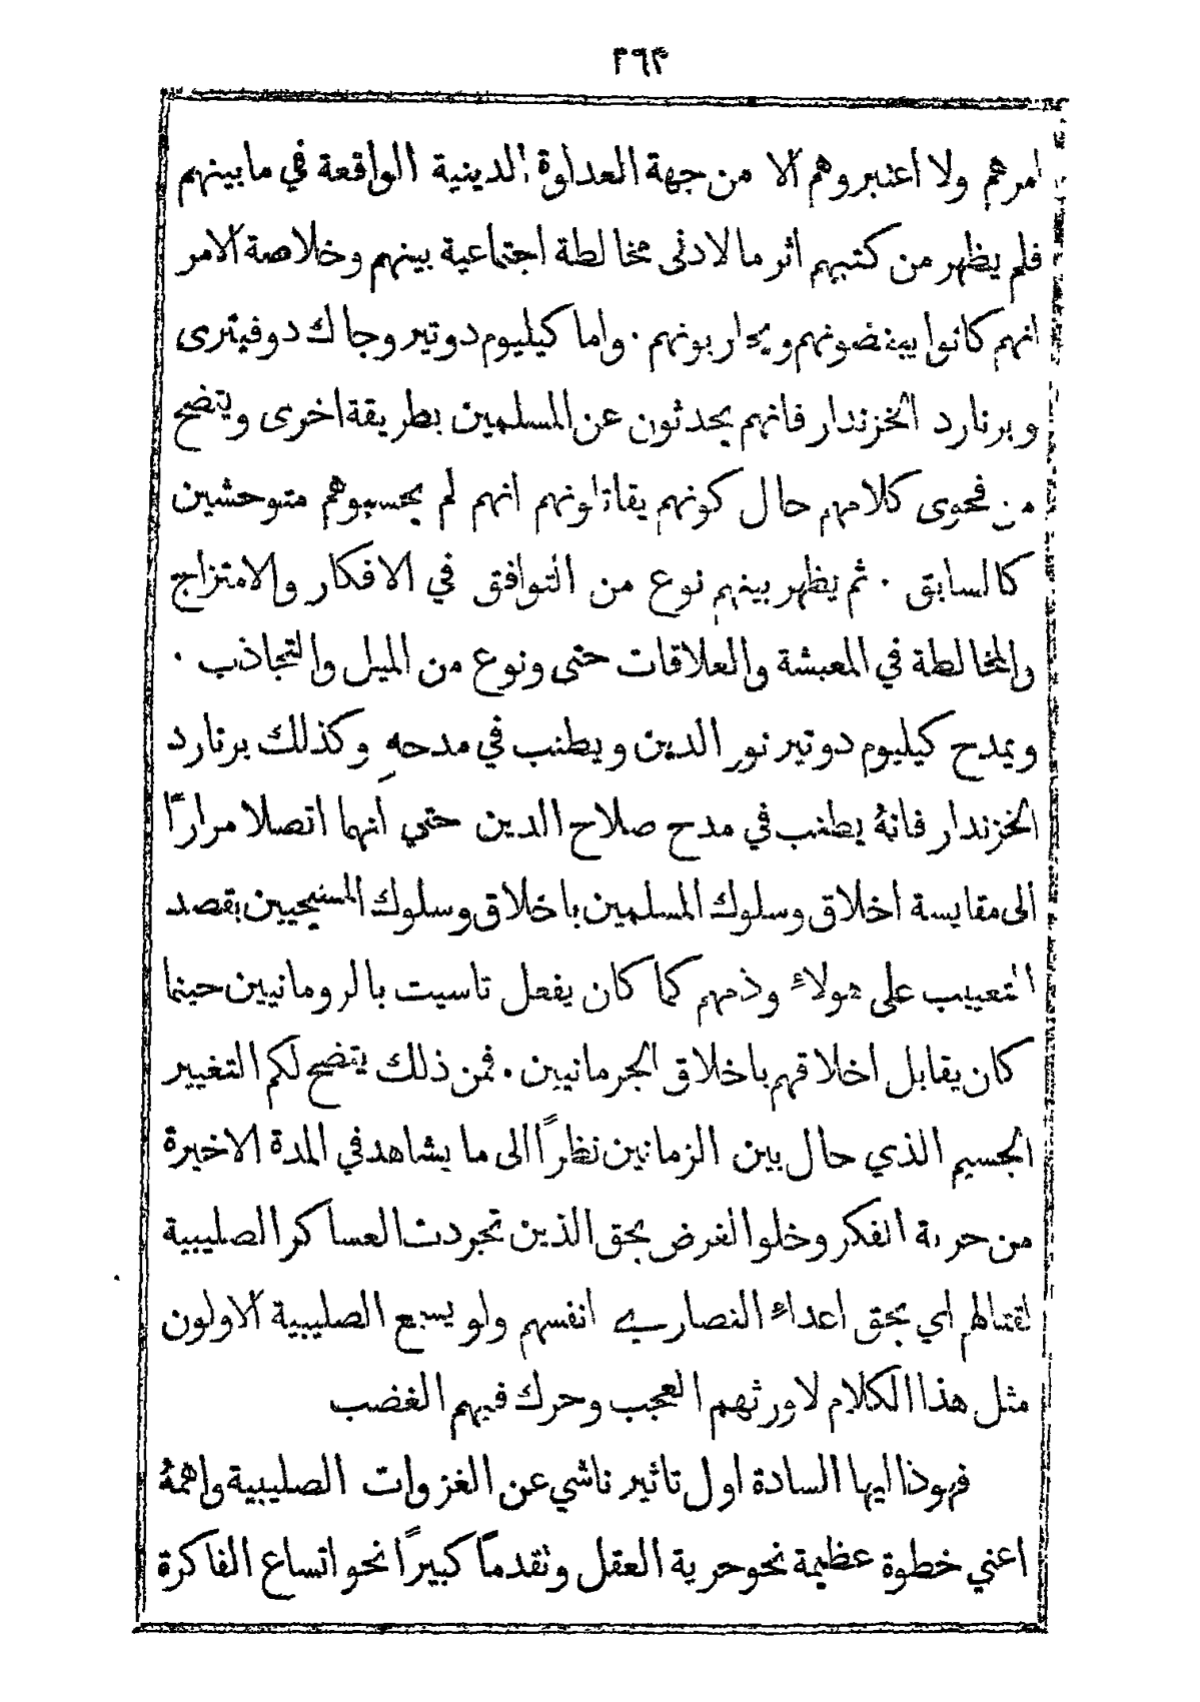 امرهم ولا اعتبروهم الا من جهة العداوة الدينية الواقعة في ما بينهم
فلم يظهر من كتبهم اثر ما لادنى مخالطة اجتماعية بينهم وخلاصة الامر
انهم كانوا يبغضونهم ويحاربونهم . واما كيليوم دوتير وجاك دوفيترى
وبرنارد الخزندار فانهم يحدثون عن المسلمين بطريقة اخرى ويتضح
من فحوى كلامهم حال كونهم يقاتلونهم انهم لم يحسبوهم متوحشين
كالسابق . ثم يظهر بينهم نوع من التوافق في الافكار والامتزاج
والمخالطة في المعيشة والعلاقات حتى ونوع من الميل والتجاذب .
ويمدح كيليوم دوتير نور الدين ويطنب في مدحهِ وكذلك برنارد
الخزندار فانهُ يطنب في مدح صلاح الدين حتى انهما اتصلا مرارًا
الى مقايسة اخلاق وسلوك المسلمين باخلاق وسلوك المسيحيين بقصد
التعييب على هولاء وذمهم كما كان يفعل تاسيت بالرومانيين حينما
كان يقابل اخلاقهم باخلاق الجرمانيين . فمن ذلك يتضح لكم التغيير
الجسيم الذي حال بين الزمانين نظرًا الى ما يشاهد في المدة الاخيرة
من حرية الفكر وخلو الغرض بحق الذين تجردت العساكر الصليبية
لقتالهم اي بحق اعداء النصارى انفسهم ولو يسمع الصليبية الاولون
مثل هذا الكلام لاورثهم العجب وحرك فيهم الغضب
فهوذا ايها السادة اول تاثير ناشي عن الغزوات الصليبية واهمهُ
اعني خطوة عظيمة نحو حرية العقل وتقدماً كبيرًا نحو اتساع الفاكرة